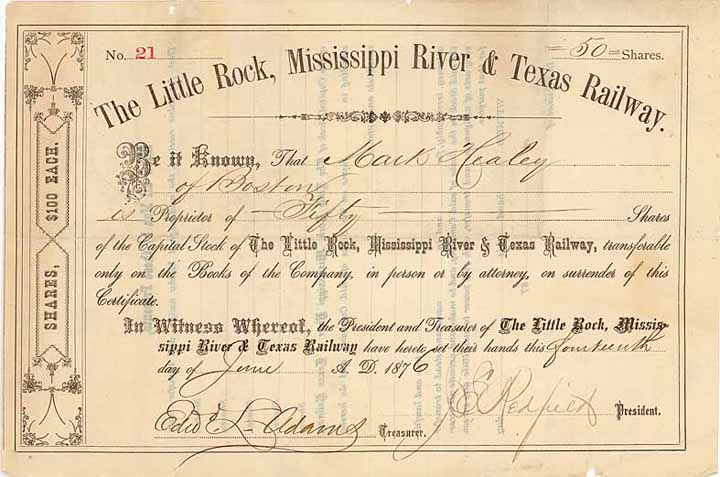 No. 21
50 Shares.
The Little Rock, Mississippi River & Texas Railway.
Be it Known, That Mark Healey
of Boston
is Proprietor of Fifty Shares
of the Capital Stock of The Little Rock, Mississippi River & Texas Railway, transferable
only on the Books of the Company, in person or by attorney, on surrender of this
Certificate.
In Witness Whereof, the President and Treasurer of The Little Rock, Missis-
sippi River & Texas Railway have hereto set their hands this fourteenth
day of June A. D. 1876
E Redfield President.
Edwd L. Adams Treasurer.
SHARES, $100 EACH.